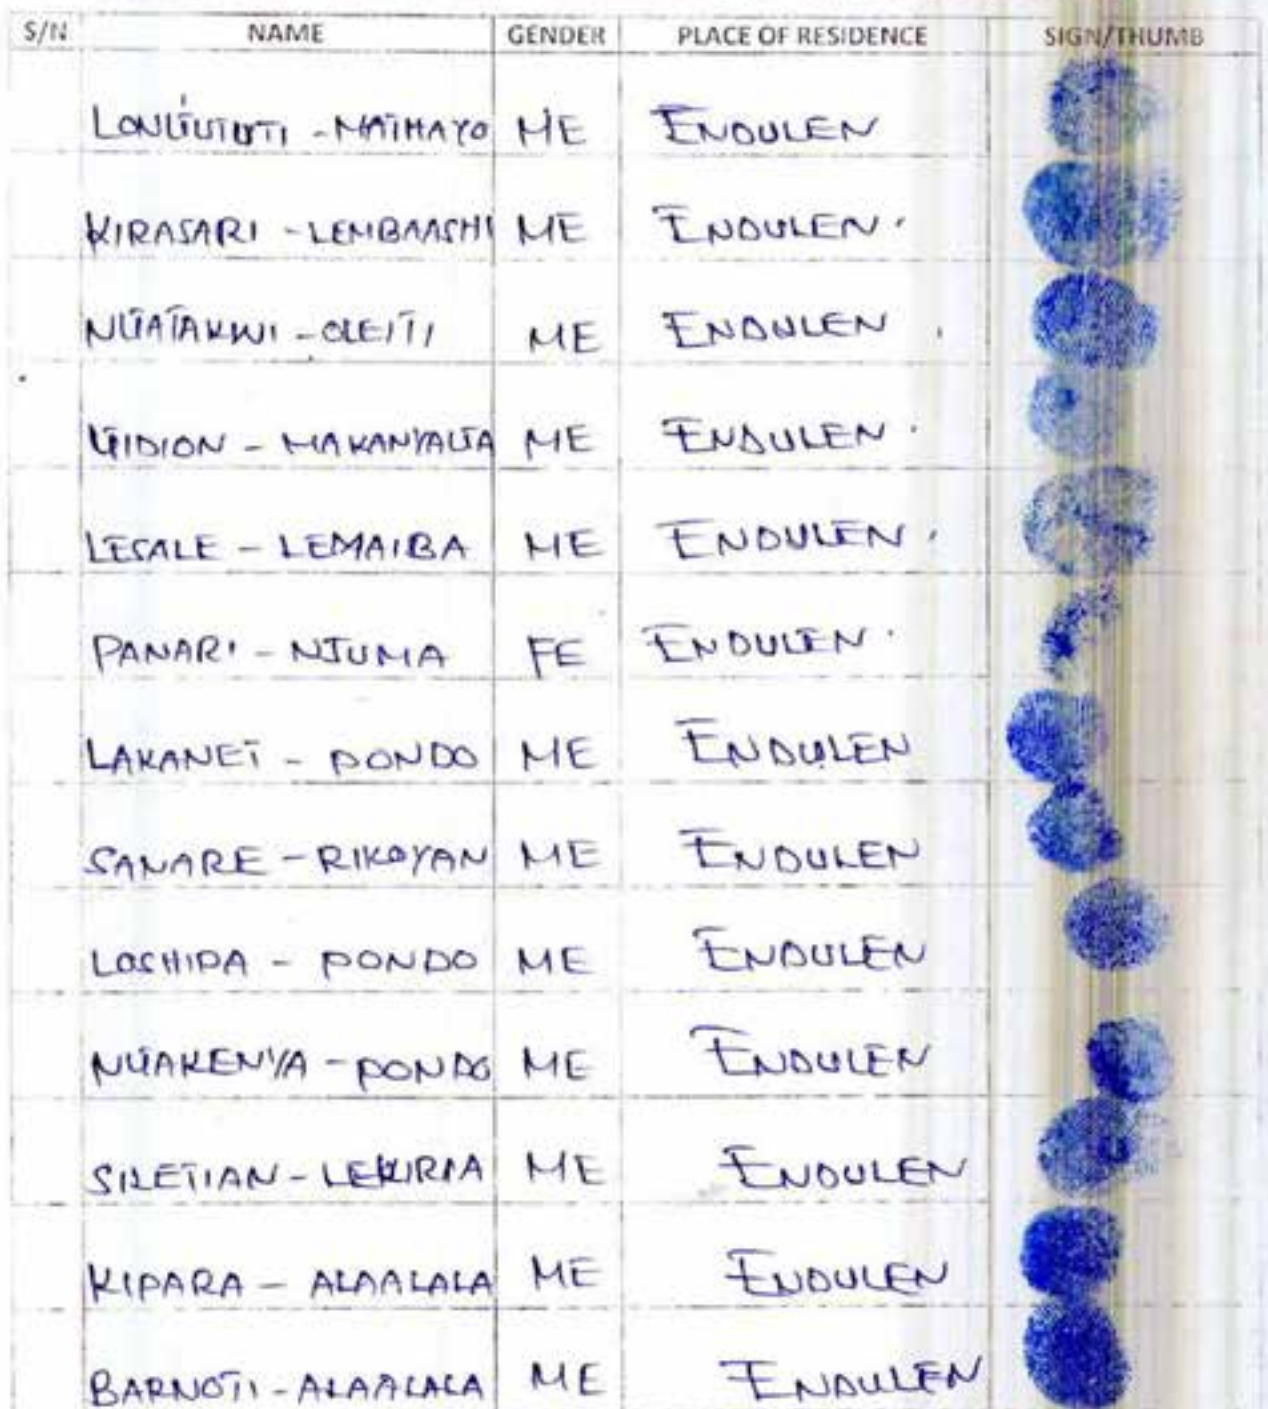 S/N NAME GENDER PLACE OF RESIDENCE SIGN/THUMB
MATHAYO ME ENDULEN
KIRASARI - LEMBAASHI ME ENDULEN.
OLEITI ME ENDULEN
GIDION - MAKANYAGA ME ENDULEN.
LESALE - LEMAIBA ME ENDULEN.
PANARI - NJUMA FE ENDULEN.
LAKANET - PONDO ME ENDULEN
SANARE - RIKOYAN ME ENDULEN
LOSHIPA - PONDO ME ENDULEN
NGAKENYA - PONDO ME ENDULEN
SILETIAN - LEKURRA ME ENDULEN
KIPARA - ALAALALA ME ENDULEN
BARNOTI - ALAALALA ME ENDULEN